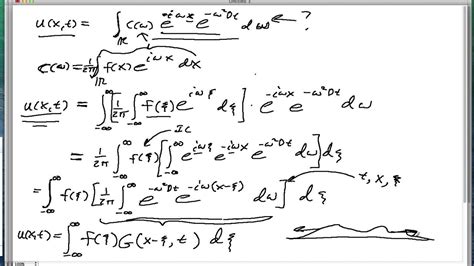 u(x,t) = ∫_ℝ C(ω) e^{-iωx} e^{-ω²Dt} dω ?
C(ω) = 1/2π ∫_ℝ f(x) e^{iωx} dx
u(x,t) = ∫_{-∞}^{∞} [1/2π ∫_{-∞}^{∞} f(ξ) e^{iωξ} dξ] · e^{-iωx} e^{-ω²Dt} dω
IC
= 1/2π ∫_{-∞}^{∞} f(ξ) [∫_{-∞}^{∞} e^{iωξ} e^{-iωx} e^{-ω²Dt} dω] dξ
= ∫_{-∞}^{∞} f(ξ) [1/2π ∫_{-∞}^{∞} e^{-ω²Dt} e^{-iω(x-ξ)} dω] dξ t, x, ξ
u(x,t) = ∫_{-∞}^{∞} f(ξ) G(x-ξ, t) dξ